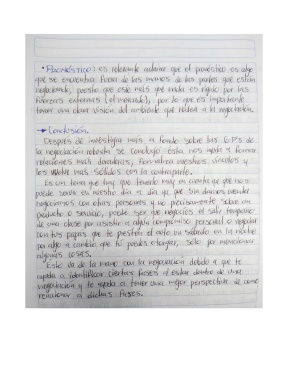 • Pronóstico: es relevante aclarar que el pronóstico es algo
que se encuentra fuera de las manos de las partes que están
negociando, puesto que este más que nada es regido por las
fuerzas externas (el mercado), por lo que es importante
tener una clara visión del ambiente que rodea a la negociación.
→ Conclusión.
Después de investigar más a fondo sobre las 6 P's de
la negociación robusta se concluyó ésta nos ayuda a formar
relaciones más duraderas, nuestros vínculos y
les más sólidos con la contraparte.
Es un tema que hay que tenerlo muy en cuenta ya que nos
puede servir en nuestro día a día ya que sin darnos cuenta
negociamos con otras personas y no precisamente sobre un
producto o servicio, puede ser que negocies el salir temprano
de una clase por asistir a algún compromiso personal o negociar
con tus papás que te presten el auto un sábado en la noche
por algo a cambio que tú puedes otorgar, sólo por mencionar
algunas cosas.
Esto va de la mano con la negociación debido a que te
ayuda a identificar ciertas fases al estar dentro de una
negociación y te ayuda a tener una mejor perspectiva de como
reaccionar a dichas fases.